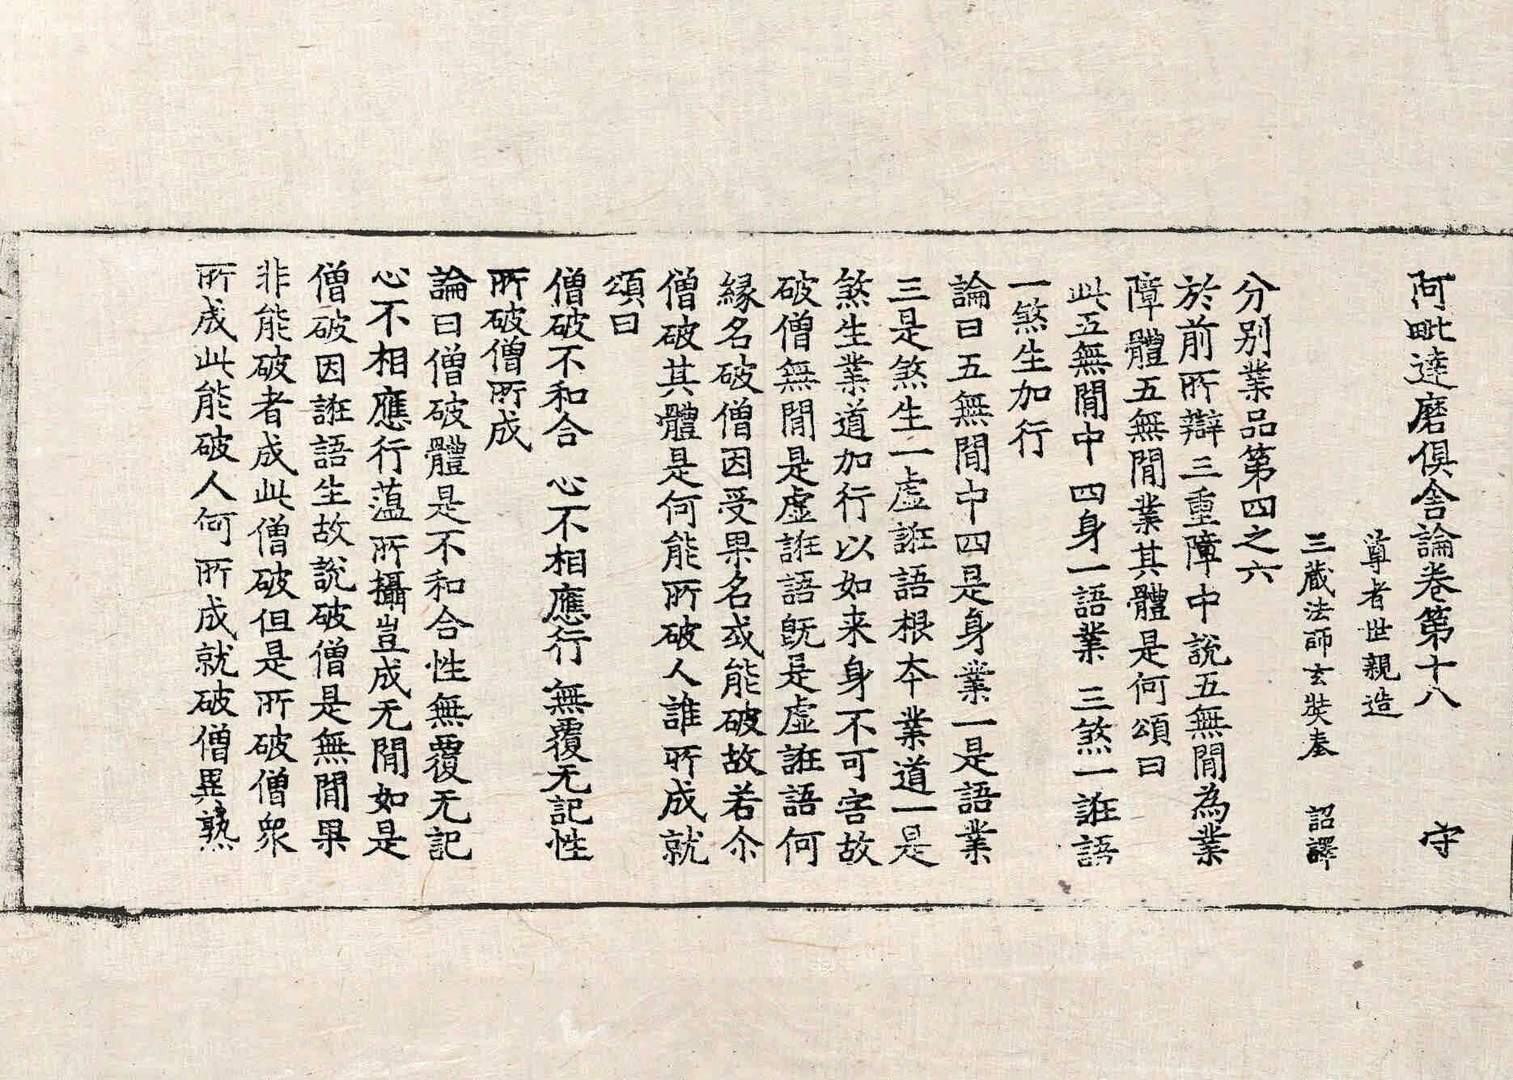 阿毗達磨俱舍論卷第十八　守
尊者世親造
三藏法師玄奘奉　詔譯
分別業品第四之六
於前所辯三重障中說五無間為業
障體五無間業其體是何頌曰
此五無間中　四身一語業　三煞一誑語
一煞生加行
論曰五無間中四是身業一是語業
三是煞生一虛誑語根本業道一是
煞生業道加行以如来身不可害故
破僧無間是虛誑語旣是虛誑語何
緣名破僧因受果名或能破故若尒
僧破其體是何能所破人誰所成就
頌曰
僧破不和合　心不相應行　無覆无記性
所破僧所成
論曰僧破體是不和合性無覆无記
心不相應行蕰所攝豈成无間如是
僧破因誑語生故說破僧是無間果
非能破者成此僧破但是所破僧衆
所成此能破人何所成就破僧異熟